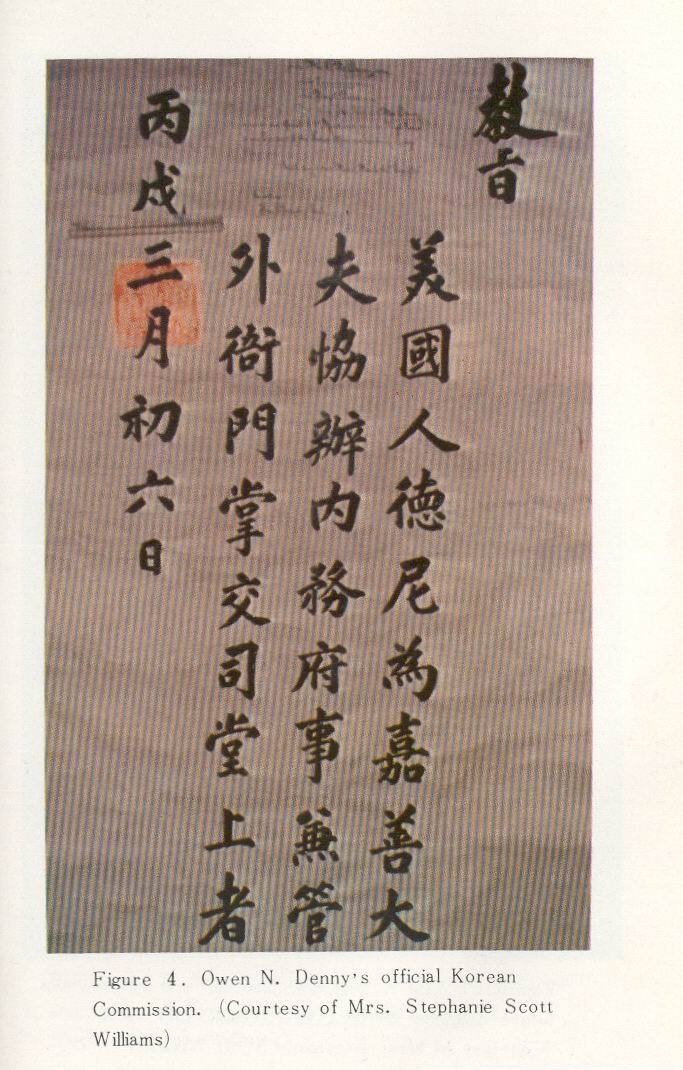 教旨
美國人德尼為嘉善大
夫協辦内務府事兼管
外衙門掌交司堂上者
丙戌三月初六日
Figure 4. Owen N. Denny's official Korean
Commission. (Courtesy of Mrs. Stephanie Scott
Williams)